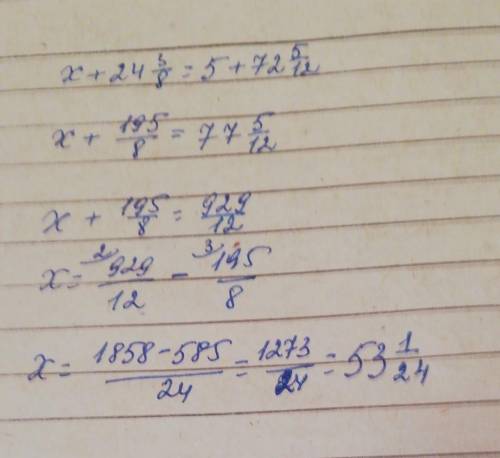 x + 24 3/8 = 5 + 72 5/12
x + 195/8 = 77 5/12
x + 195/8 = 929/12
x = ²⁾929/12 - ³⁾195/8
x = (1858 - 585)/24 = 1273/24 = 53 1/24